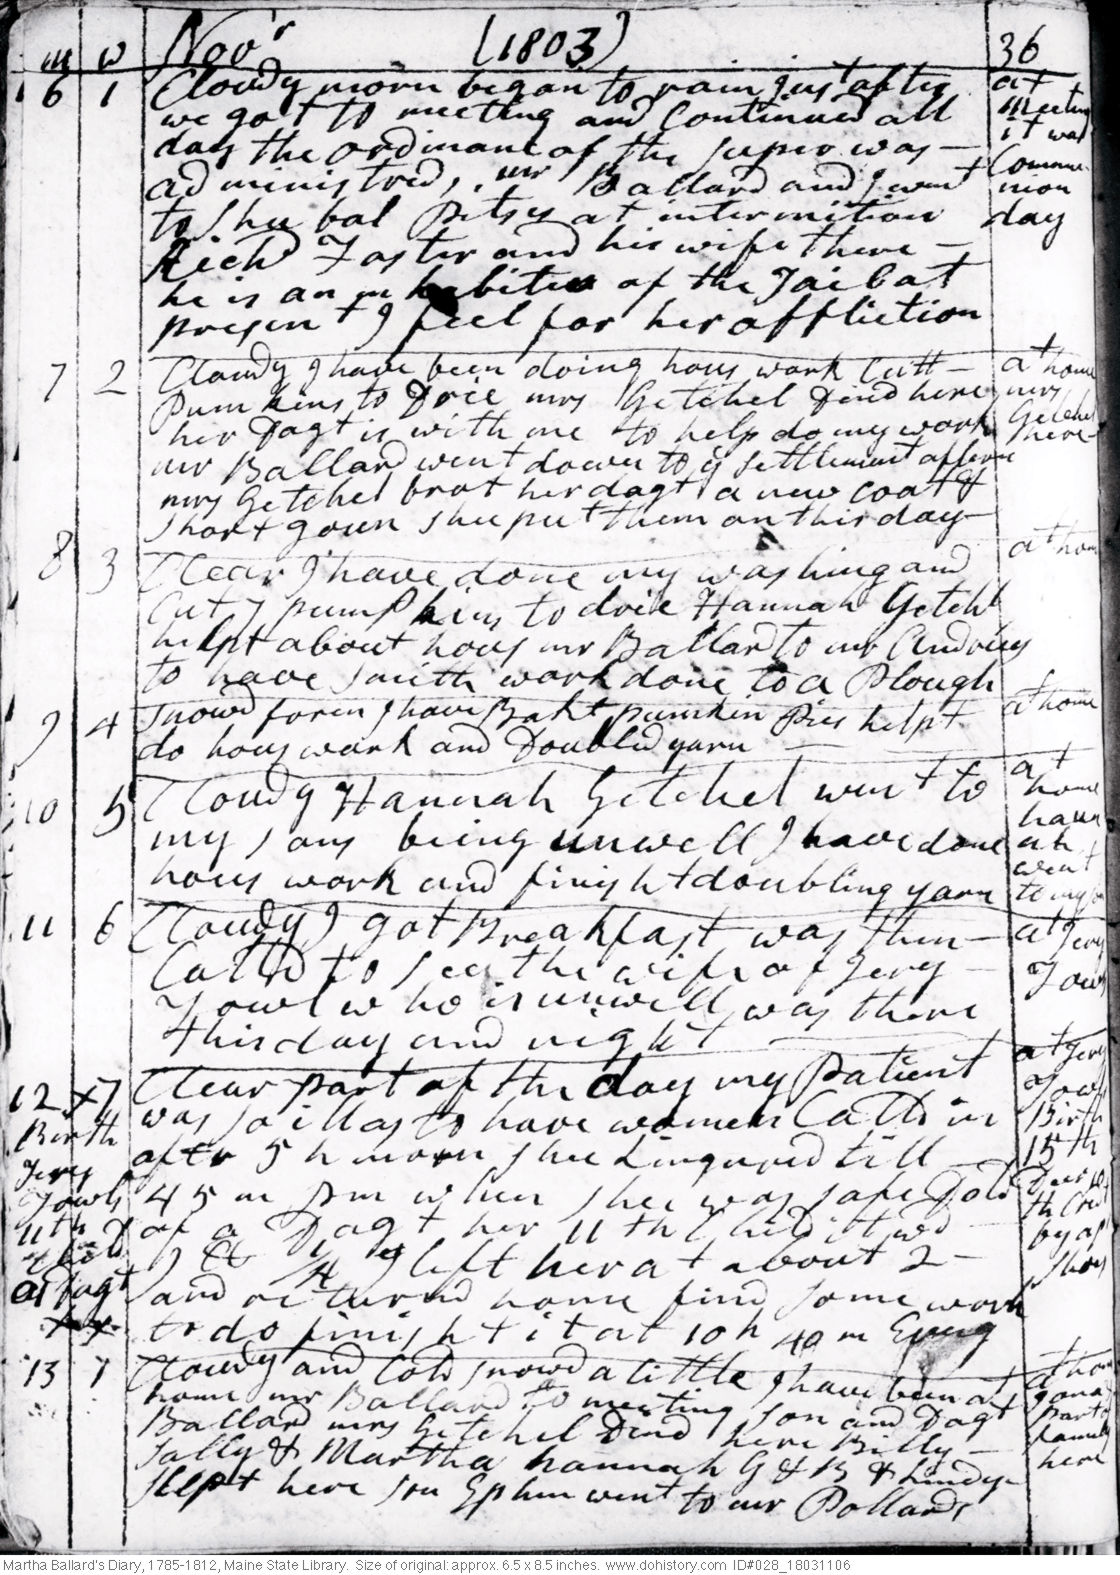 m w Novr (1803) 36
6 1 Cloudy morn began to rain just after
we got to meeting and Continued all
day the ordinanc of the super was -
administred, mr Ballard and I went
to Shubal Pitsys at intermition
Richd Foster and his wife there -
he is an inhabiter of the Jail at
present I feel for her affliction
at
meeting
it was
Commu
nion
day
7 2 Cloudy I have been doing hous work Cutt -
Pumkins to Drie mrs Getchel Dind here
her Dagt is with me to help do my work
mr Ballard went down to ye settlement aftern
mrs Getchel brot her dagt a new coat &
short goun shee put them on this day -
at home
mrs
Getchel
here -
8 3 Clear I have done my washing and
Cutt pumpkins to drie Hannah Getchl
helpt about hous mr Ballard to mr Andrews
to have smith work done to a Plough
at hom
9 4 Snowd foren I have Bakt pumkin Pies helpt
do hous work and Doubled yarn -
at home
10 5 Cloudy Hannah Getchel went to
my sons being unwell I have done
hous work and finisht doubling yarn
at
home
hann
ah
went
to my
11 6 Cloudy I got Breakfast was then -
Calld to see the wife of Jery -
Towl who is unwell was there
this day and night
at Jery
Tows
12 x7 Clear part of the day my Patient
was so ill as to have women Calld in
after 5 h morn shee Lingured till -
45 m pm when shee was safe Dld
of a Dagt her 11th Child it wd
I left her at about 2 -
and returnd home find some work
to do finisht it at 10 h 40 m Evng
Birth
Jerys
Towls
11th
Child
a Dagt
x x
at Jery
Tows
Birth
15th
by
shoes
13 1 Cloudy and Cold snowd a little I have been at
home mr Ballard to meeting son and Dagt
Ballard mrs Getchel Dind here Billy -
Sally & Martha hannah G & B & hindy -
slept here son Ephm went to mr Pollards
at hom
Jona
Part
family
here
Martha Ballard's Diary, 1785-1812, Maine State Library. Size of original: approx. 6.5 x 8.5 inches. www.dohistory.com ID#028_18031106